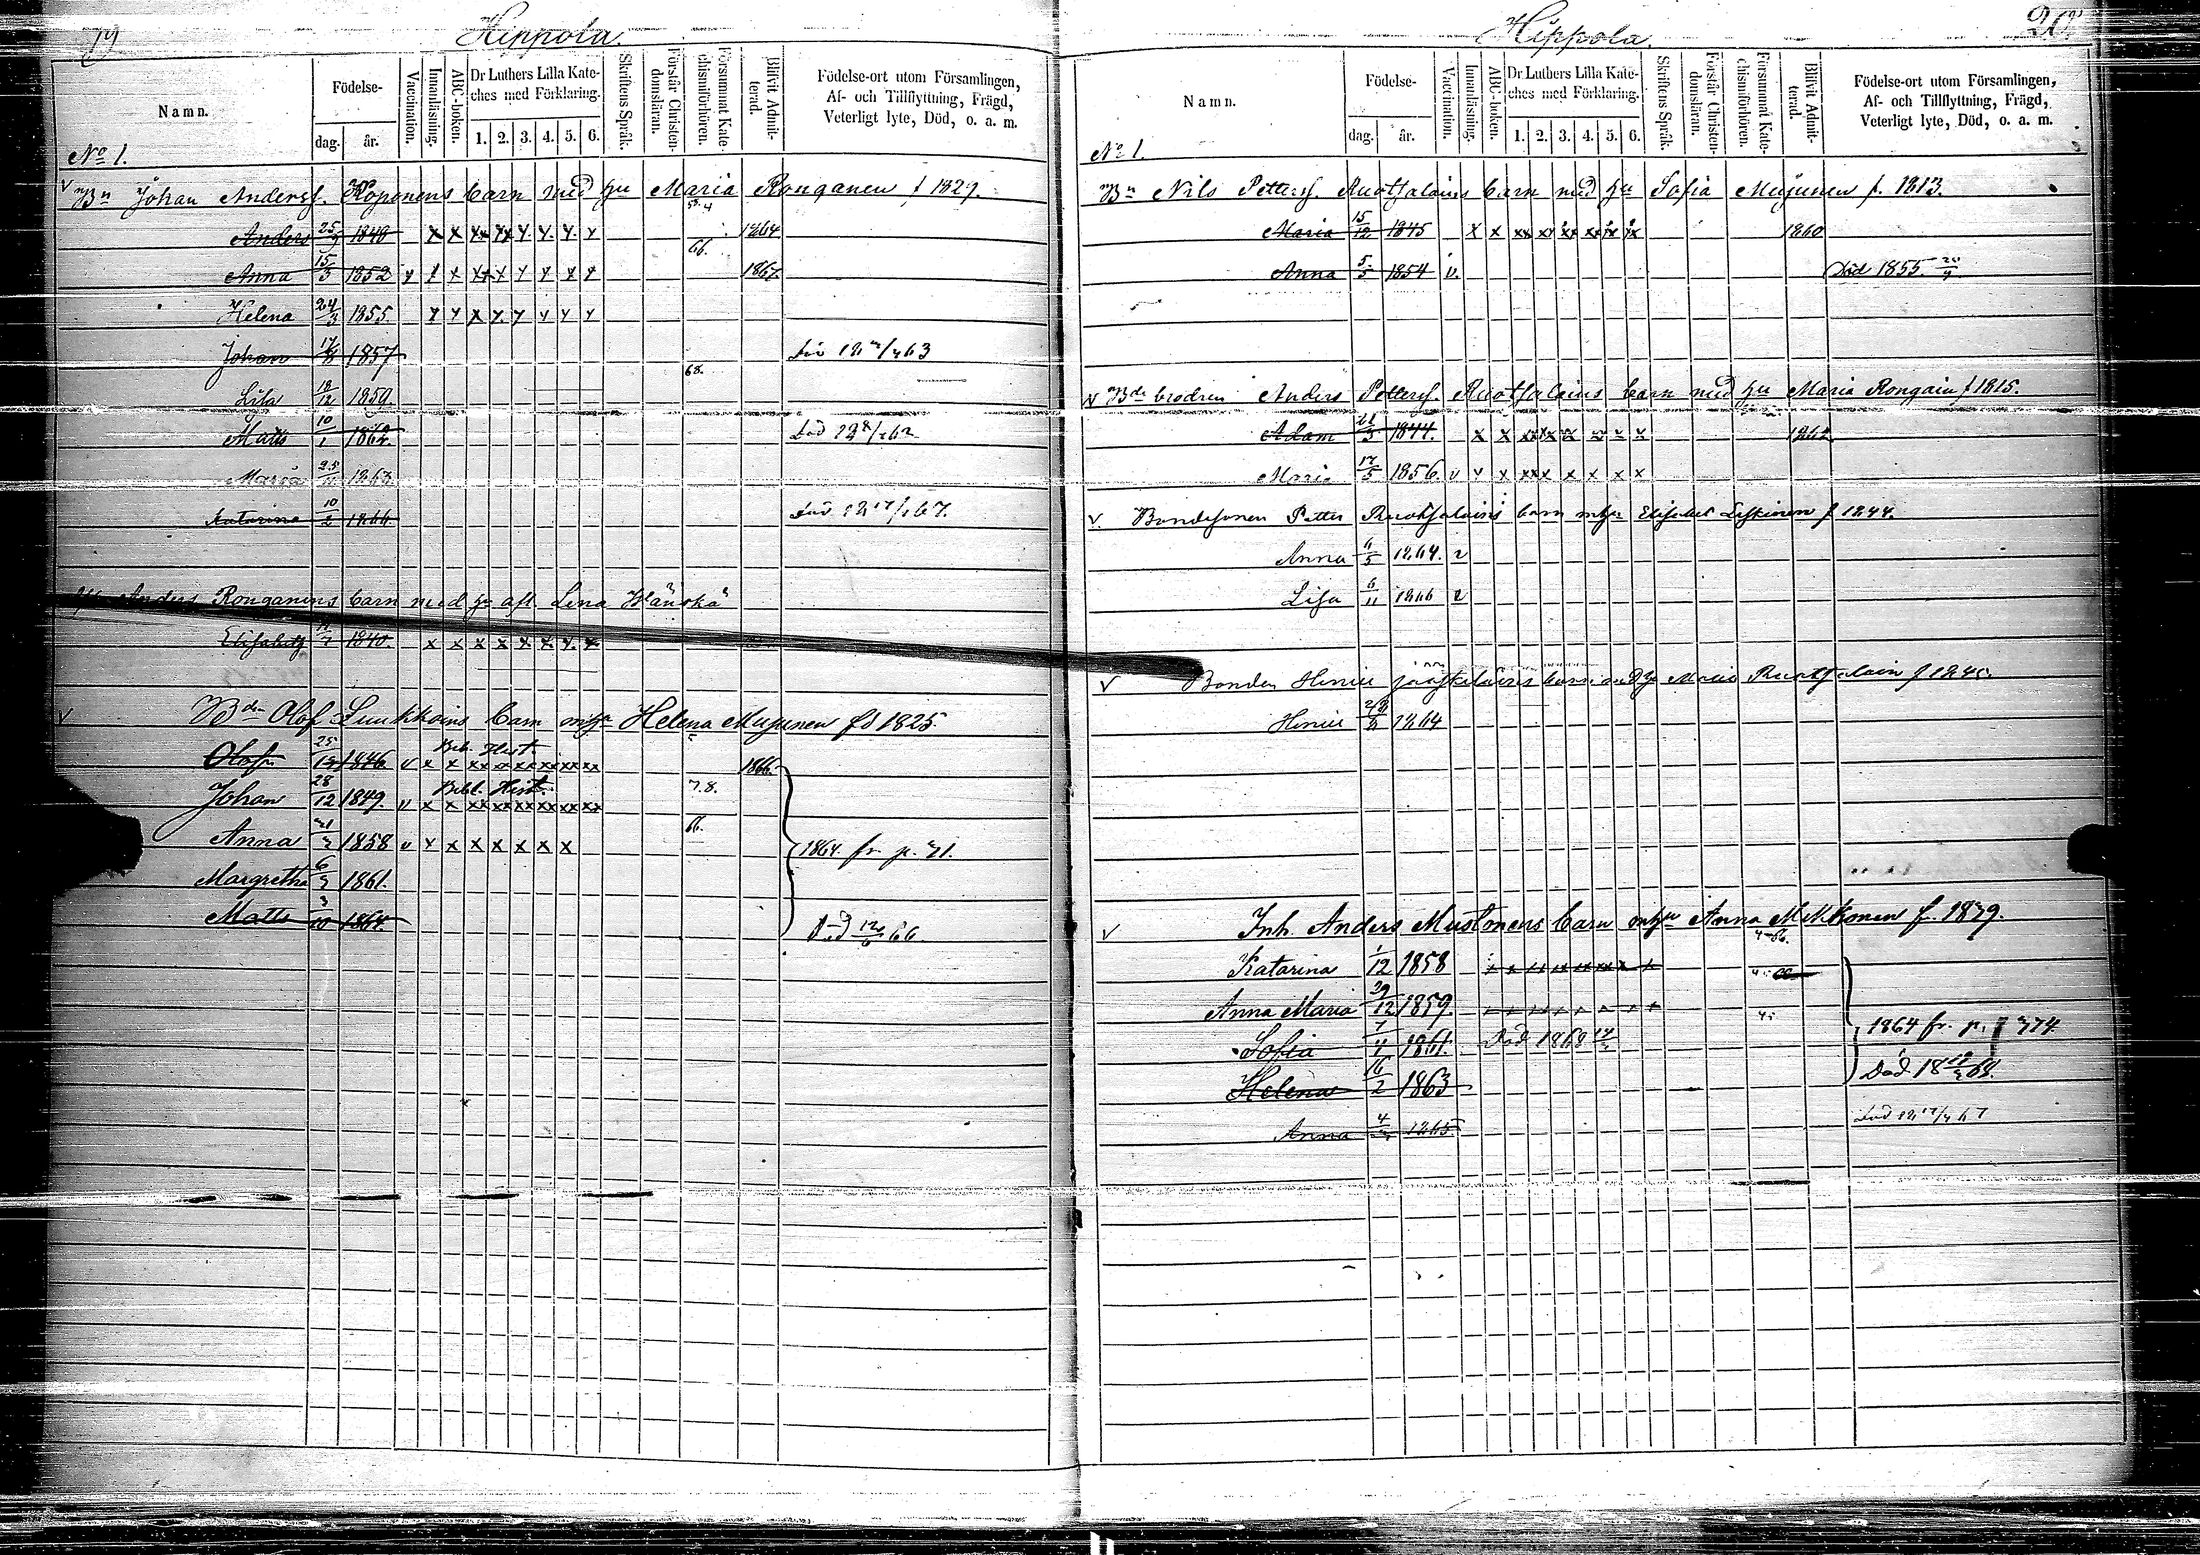 19
Hippola.
Namn.
Födelse-
dag.
år.
Vaccination.
Innanläsning.
ABC-boken.
Dr Luthers Lilla Kate-
ches med Förklaring.
1. 2. 3. 4. 5. 6.
Skriftens Språk.
Förstår Christen-
domsläran.
Försummat Kate-
chismiförhören.
Blifvit Admit-
terad.
Födelse-ort utom Församlingen,
Af- och Tillflyttning, Frägd,
Veterligt lyte, Död, o. a. m.
No 1.
v Bn Johan Andersf. Koponens barn med hu Maria Ronganen f 1829.
Anders 25/9 1848 x x xx xx y. y. y. y 1864
Anna 15/3 1852 y x x xx x y y x y 66. 1867.
Helena 24/3 1855 y y x y. y y y y
Johan 1857
Lisa 18/12 1859. 68.
Matts 10/1 1862.
Maria 1863
Katarina 10/2 1866
Anders Ronganens barn med hu afl. Lena Hänska
Elisabeth 1840. x x x x x x. y. x
v Bden Olof Luukkoins barn mhu Helena Mujunen fd 1825.
Olof 25/12 1846 v x x xx xx xx xx xx xx Bib. Hist. 1866.
Johan 28/12 1849. v x x xx xx xx xx xx xx Bibl. Hist. 7.8.
Anna 1858 v x x x x x x x 66.
1864 fr p. 71.
Margretha 1861.
Matts 3/10 1864.
20.
Hippola.
Namn.
Födelse-
dag.
år.
Vaccination.
Innanläsning.
ABC-boken.
Dr Luthers Lilla Kate-
ches med Förklaring.
1. 2. 3. 4. 5. 6.
Skriftens Språk.
Förstår Christen-
domsläran.
Försummat Kate-
chismiförhören.
Blifvit Admit-
terad.
Födelse-ort utom Församlingen,
Af- och Tillflyttning, Frägd,
Veterligt lyte, Död, o. a. m.
No 1.
Bn Nils Pettersf. Ruotsalains barn med hu Sofia Mujunen f. 1813.
Maria 15/12 1845 x x xx xx xx xx xx xx 1860
Anna 5/5 1854 v. Död 1855
v Bde brodren Anders Pettersf. Ruotsalains barn med hu Maria Rongain f 1815.
Adam 1844. x x xx xx x x x x 1862
Maria 17/5 1856 v v x xx x x x x x
v Bondesonen Petter Ruotsalains barn mhu Elisabet Leskinen f 1844.
Anna 6/5 1864. v
Lisa 6/11 1866 v
v Bonden Henric Jääskelains barn med hu Maria Ruotsalain f 1845.
Henric 1864
v Inh. Anders Mustonens barn mhu Anna Mikkonen f. 1829.
Katarina 1/12 1858
Anna Maria 29/12 1859.
1864 fr. p. 774
Sofia 7/4 1861. Död 1868
Helena 16/2 1863
Anna 1865